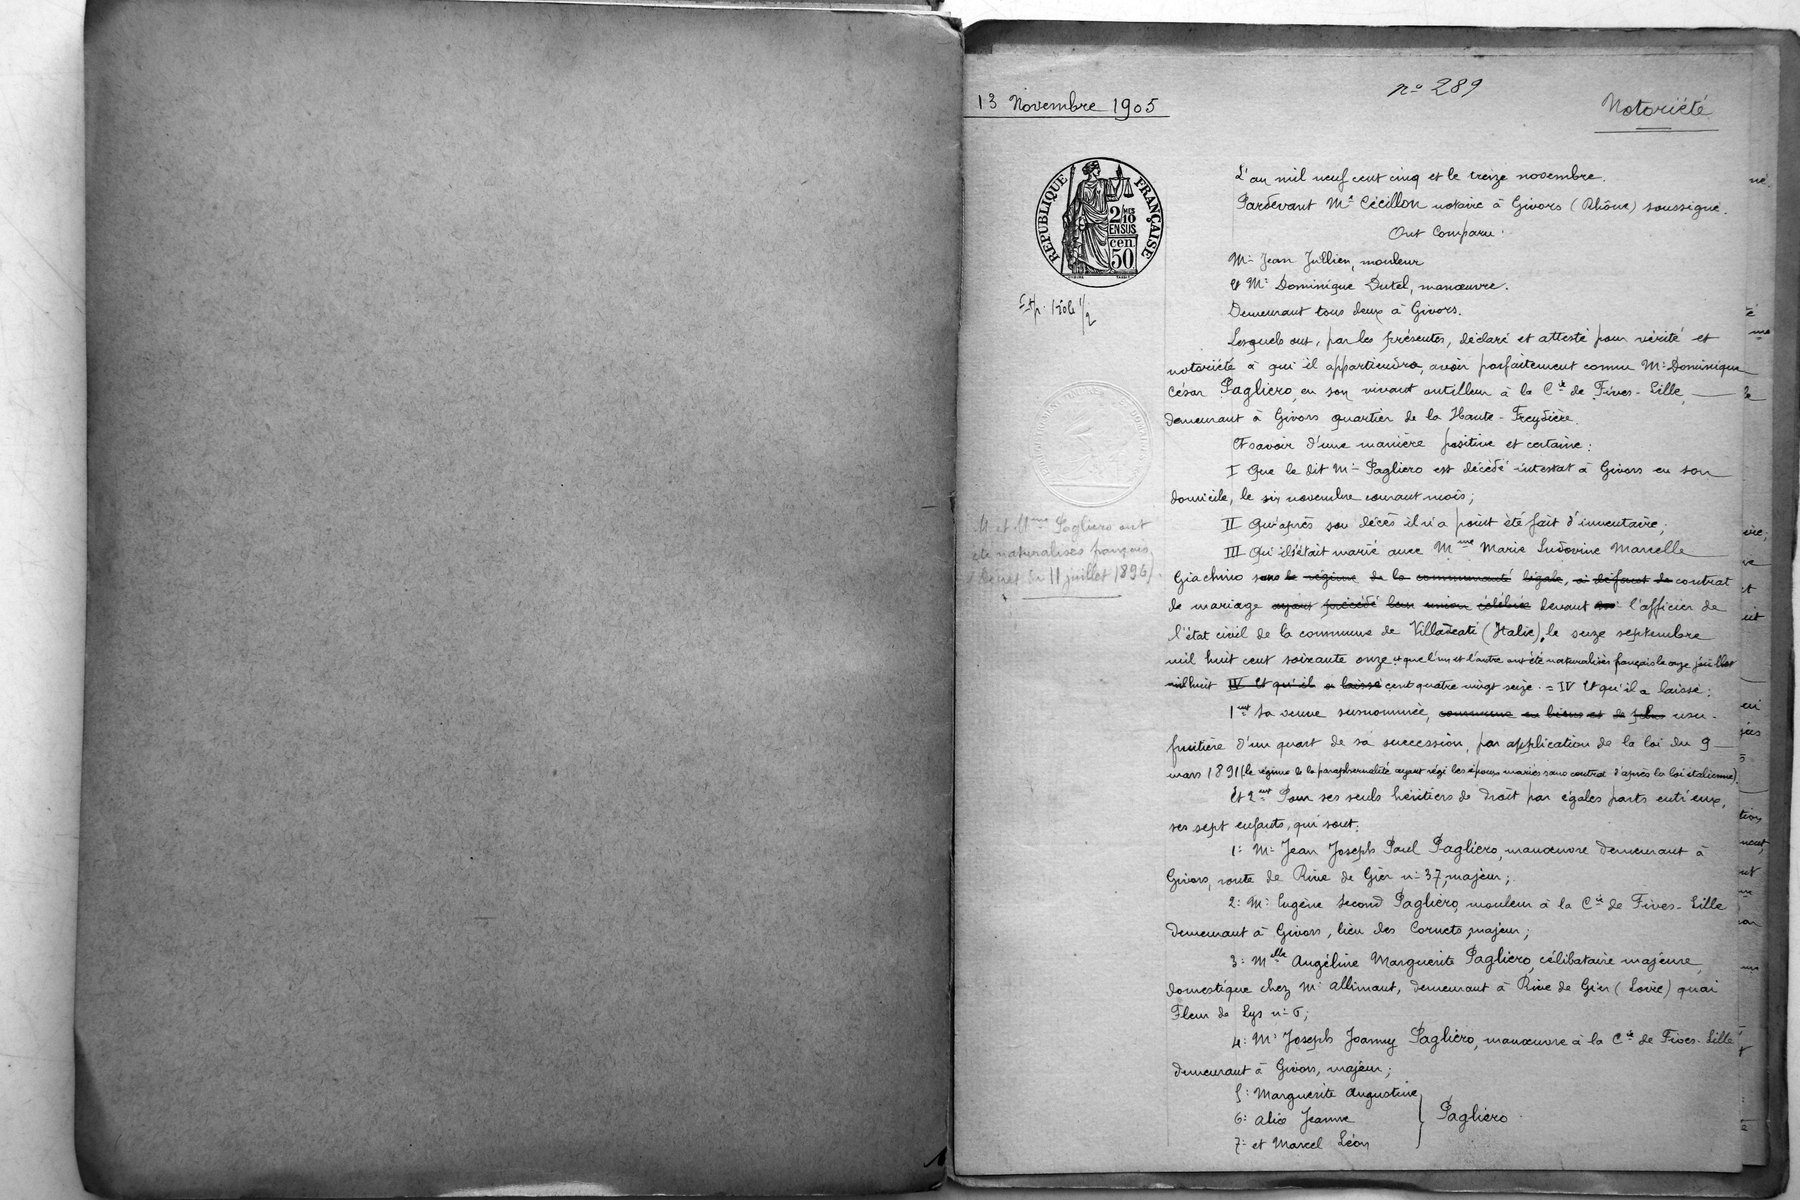 13 Novembre 1905
nº 289
Notoriété
RÉPUBLIQUE FRANÇAISE
2/10
EN SUS
cen.
50
L'an mil neuf cent cinq et le treize novembre.
Pardevant Me Cécillon notaire à Givors (Rhône) soussigné.
Ont Comparu :
Mr Jean Jullien, mouleur
Et Mr Dominique Dutel, manœuvre.
Demeurant tous deux à Givors.
Lesquels ont, par les présentes, déclaré et attesté pour vérité et
notoriété à qui il appartiendra, avoir parfaitement connu Mr Dominique
César Pagliero, en son vivant outilleur à la Cie de Fives-Lille,
demeurant à Givors quartier de la Haute-Freydière.
Et savoir d'une manière positive et certaine :
I Que le dit Mr Pagliero est décédé intestat à Givors en son
domicile, le six novembre courant mois ;
II Qu'après son décès il n'a point été fait d'inventaire ;
III Qu'il s'était marié avec Mme Marie Ludovine Marcelle
M et Mme Pagliero ont
été naturalisés français
(Décret du 11 juillet 1896).
Giachino sans le régime de la communauté légale, à défaut de contrat
de mariage ayant précédé leur union célébrée devant l'officier de
l'état civil de la commune de Villadeati (Italie), le seize septembre
mil huit cent soixante onze et que l'un et l'autre ont été naturalisés français le onze juillet
mil huit IV Et qu'il a laissé cent quatre vingt seize. = IV Et qu'il a laissé :
1ent Sa veuve susnommée, commune en biens et de plus usu-
fruitière d'un quart de sa succession, par application de la loi du 9
mars 1891 (le régime de la paraphernalité ayant régi les époux mariés sans contrat d'après la loi italienne).
Et 2ent Pour ses seuls héritiers de droit par égales parts entr'eux,
ses sept enfants, qui sont :
1º Mr Jean Joseph Paul Pagliero, manœuvre demeurant à
Givors, route de Rive de Gier nº 37, majeur ;
2º Mr Eugène Second Pagliero, mouleur à la Cie de Fives-Lille
demeurant à Givors, lieu des Cornets, majeur ;
3º Melle Angéline Marguerite Pagliero, célibataire majeure,
domestique chez Mr Allimant, demeurant à Rive de Gier (Loire) quai
Fleur de Lys nº 6 ;
4º Mr Joseph Joanny Pagliero, manœuvre à la Cie de Fives-Lille
demeurant à Givors, majeur ;
5º Marguerite Augustine
6º Alice Jeanne
Pagliero
7º et Marcel Léon